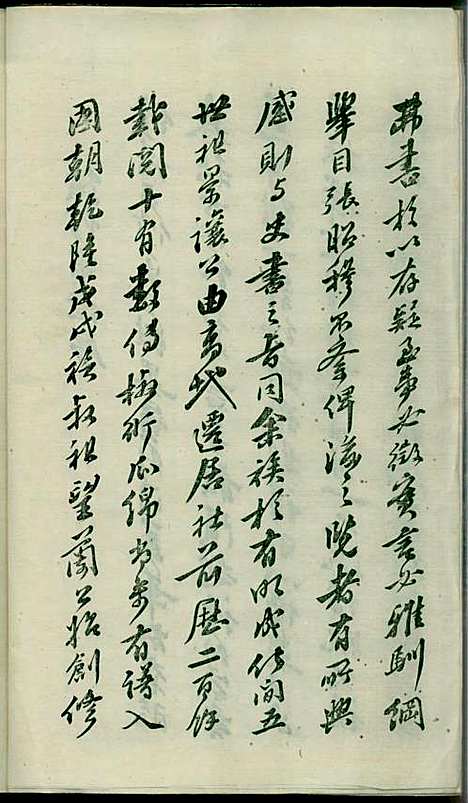 弗書於以存疑至事必徵實言必雅馴綱
舉目張昭穆不紊俾後之覽者有所興
感則與史書之旨同余族於有明成化間五
世祖景讓公由高地遷居社前歷二百餘
載閱十有數傳椒衍瓜綿尚未有譜入
國朝乾隆戊戌裕叔祖望蘭公始創修